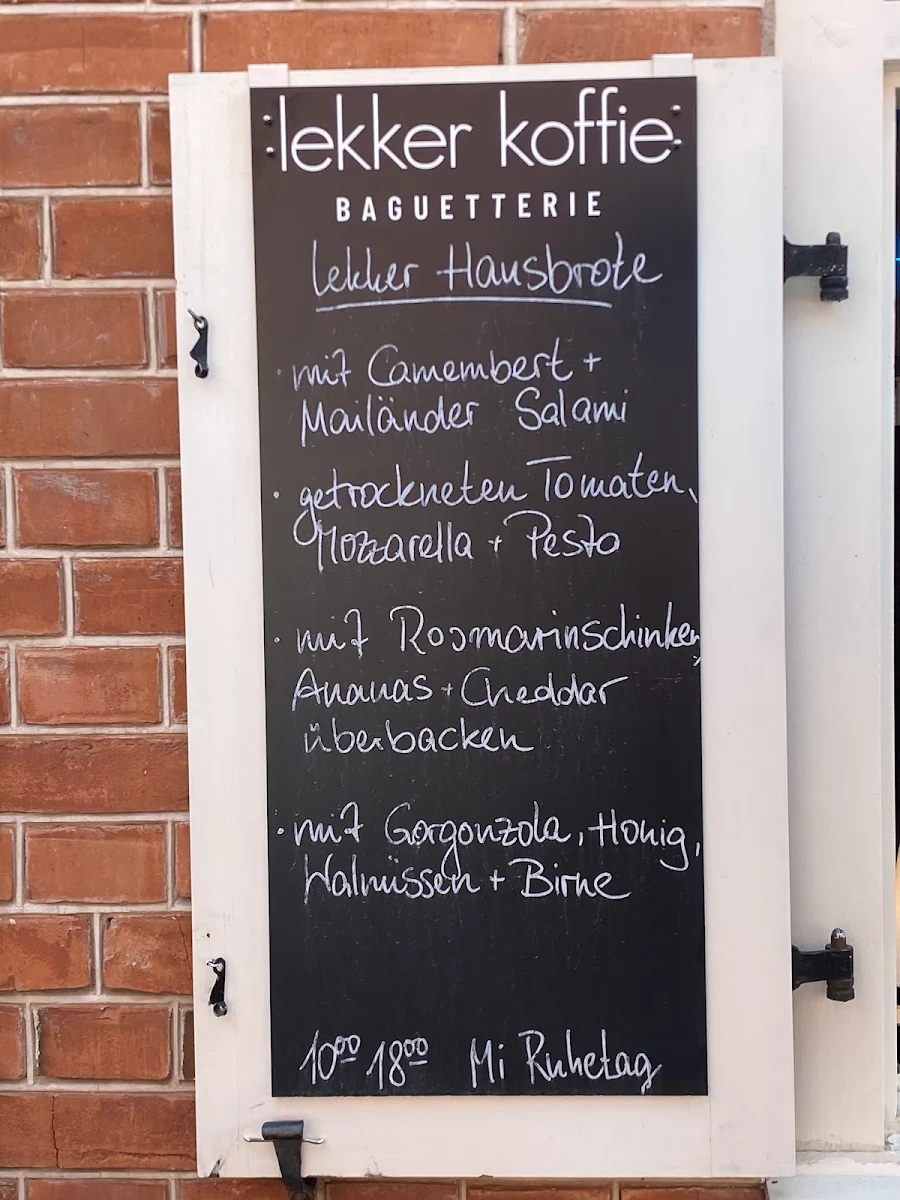 lekker koffie
BAGUETTERIE
lekker Hausbrote
· mit Camembert +
Mailänder Salami
· getrockneten Tomaten,
Mozzarella + Pesto
· mit Rosmarinschinken,
Ananas + Cheddar
überbacken
· mit Gorgonzola, Honig,
Walnüssen + Birne
10⁰⁰ 18⁰⁰ Mi Ruhetag